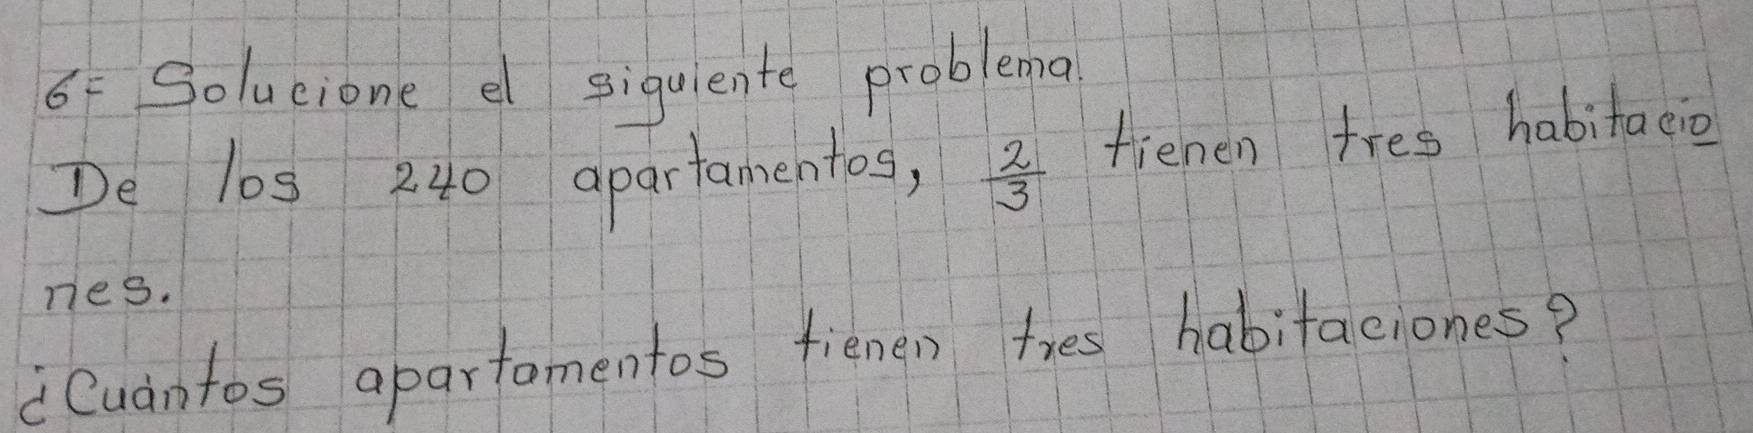 6= Solucione el siguiente problema.
De los 240 apartamentos, 2/3 tienen tres habitacio
nes.
¿Cuántos apartamentos tienen tres habitaciones?